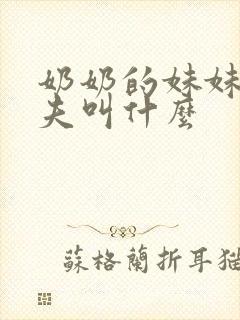 奶奶的妹妹
夫叫什麼
蘇格蘭折耳猫